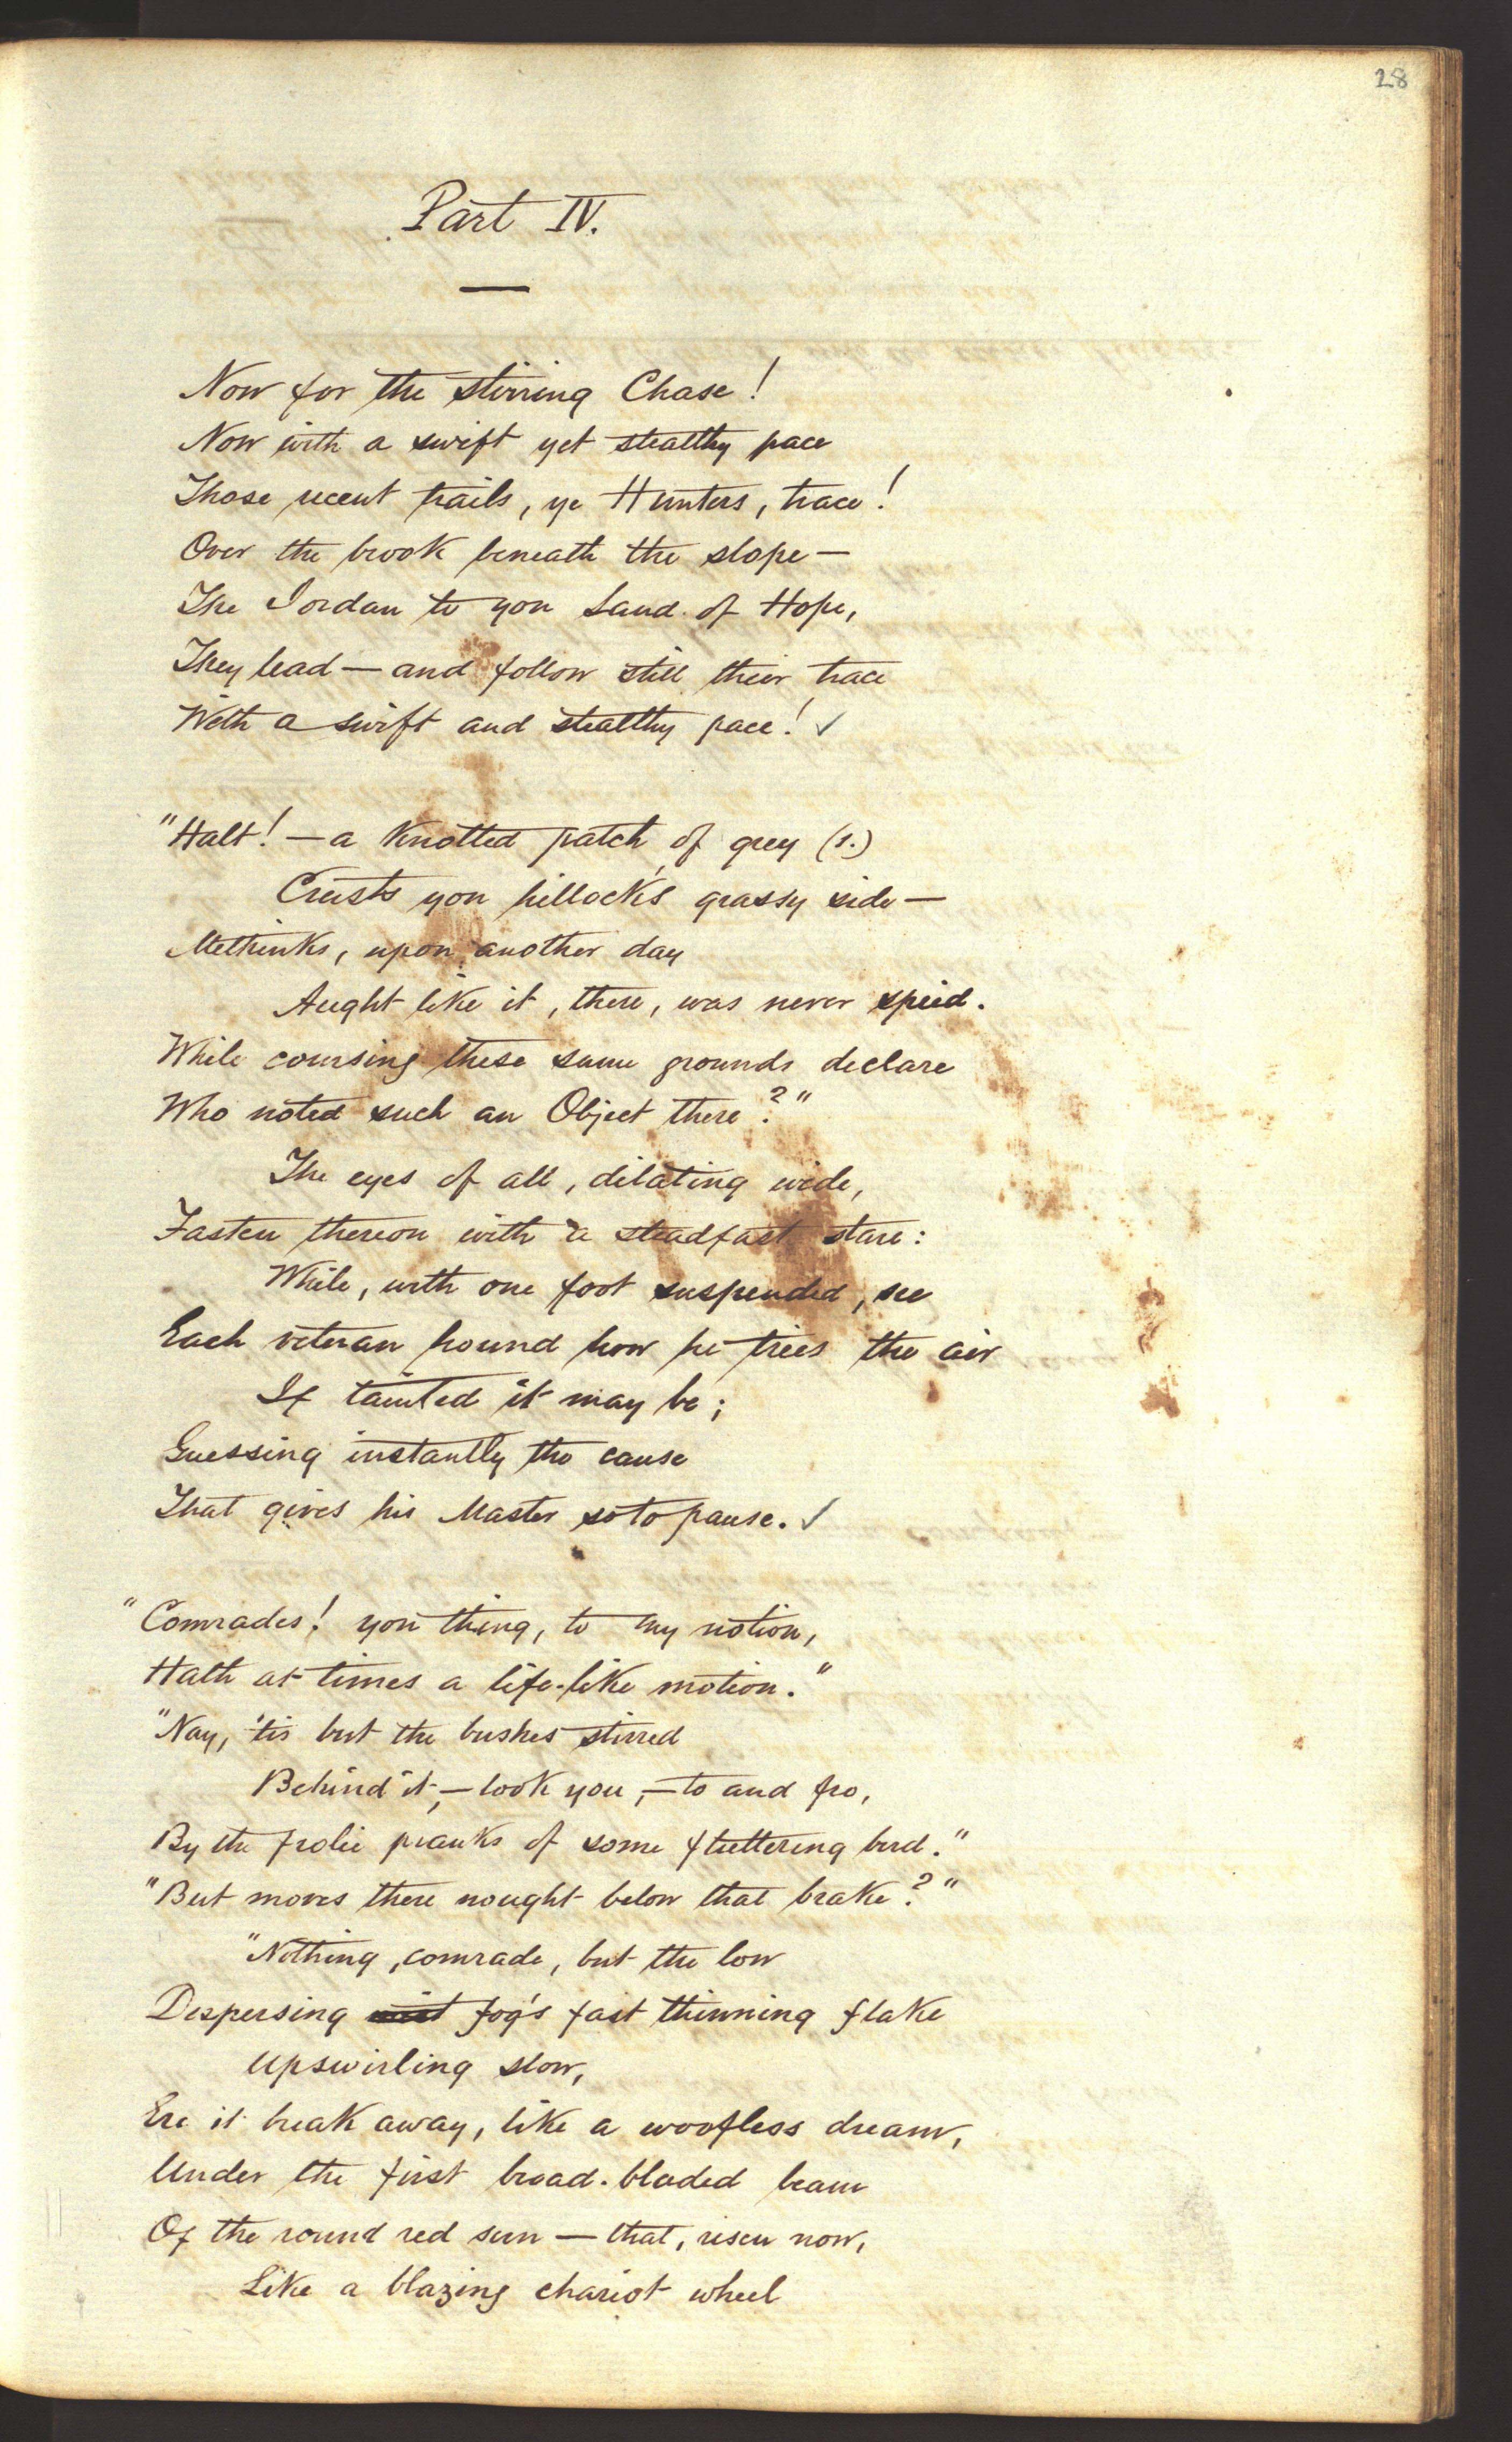 28
Part IV.
Now for the stirring Chase!
Now with a swift yet stealthy pace
Those recent trails, ye Hunters, trace!
Over the brook beneath the slope—
The Jordan to yon Land of Hope,
They lead — and follow still their trace
With a swift and stealthy pace! ✓
"Halt! — a knotted patch of grey (1.)
Crusts yon hillock's grassy side —
Methinks, upon another day
Aught like it, there, was never spied.
While coursing these same grounds declare
Who noted such an Object there?"
The eyes of all, dilating wide,
Fasten thereon with a steadfast stare:
While, with one foot suspended, see
Each veteran hound how he tries the air
If tainted it may be;
Guessing instantly the cause
That gives his Master so to pause. ✓
"Comrades! yon thing, to my notion,
Hath at times a life-like motion."
"Nay, 'tis but the bushes stirred
Behind it, — look you, — to and fro,
By the frolic pranks of some fluttering bird."
"But moves there nought below that brake?"
"Nothing, comrade, but the low
Dispersing mist fog's fast thinning flake
Upswirling slow,
Ere it break away, like a woofless dream,
Under the first broad-bladed beam
Of the round red sun — that, risen now,
Like a blazing chariot wheel